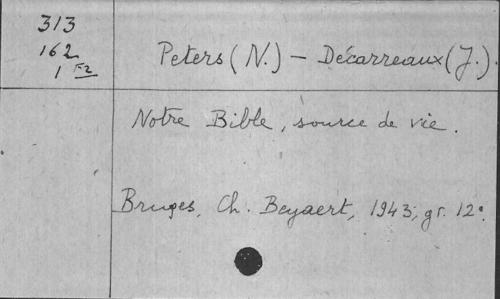 313
162
1 Ex
Peters (N.) – Décarreaux (J.).
Notre Bible, source de vie.
Bruges, Ch. Beyaert, 1943; gr. 12°.